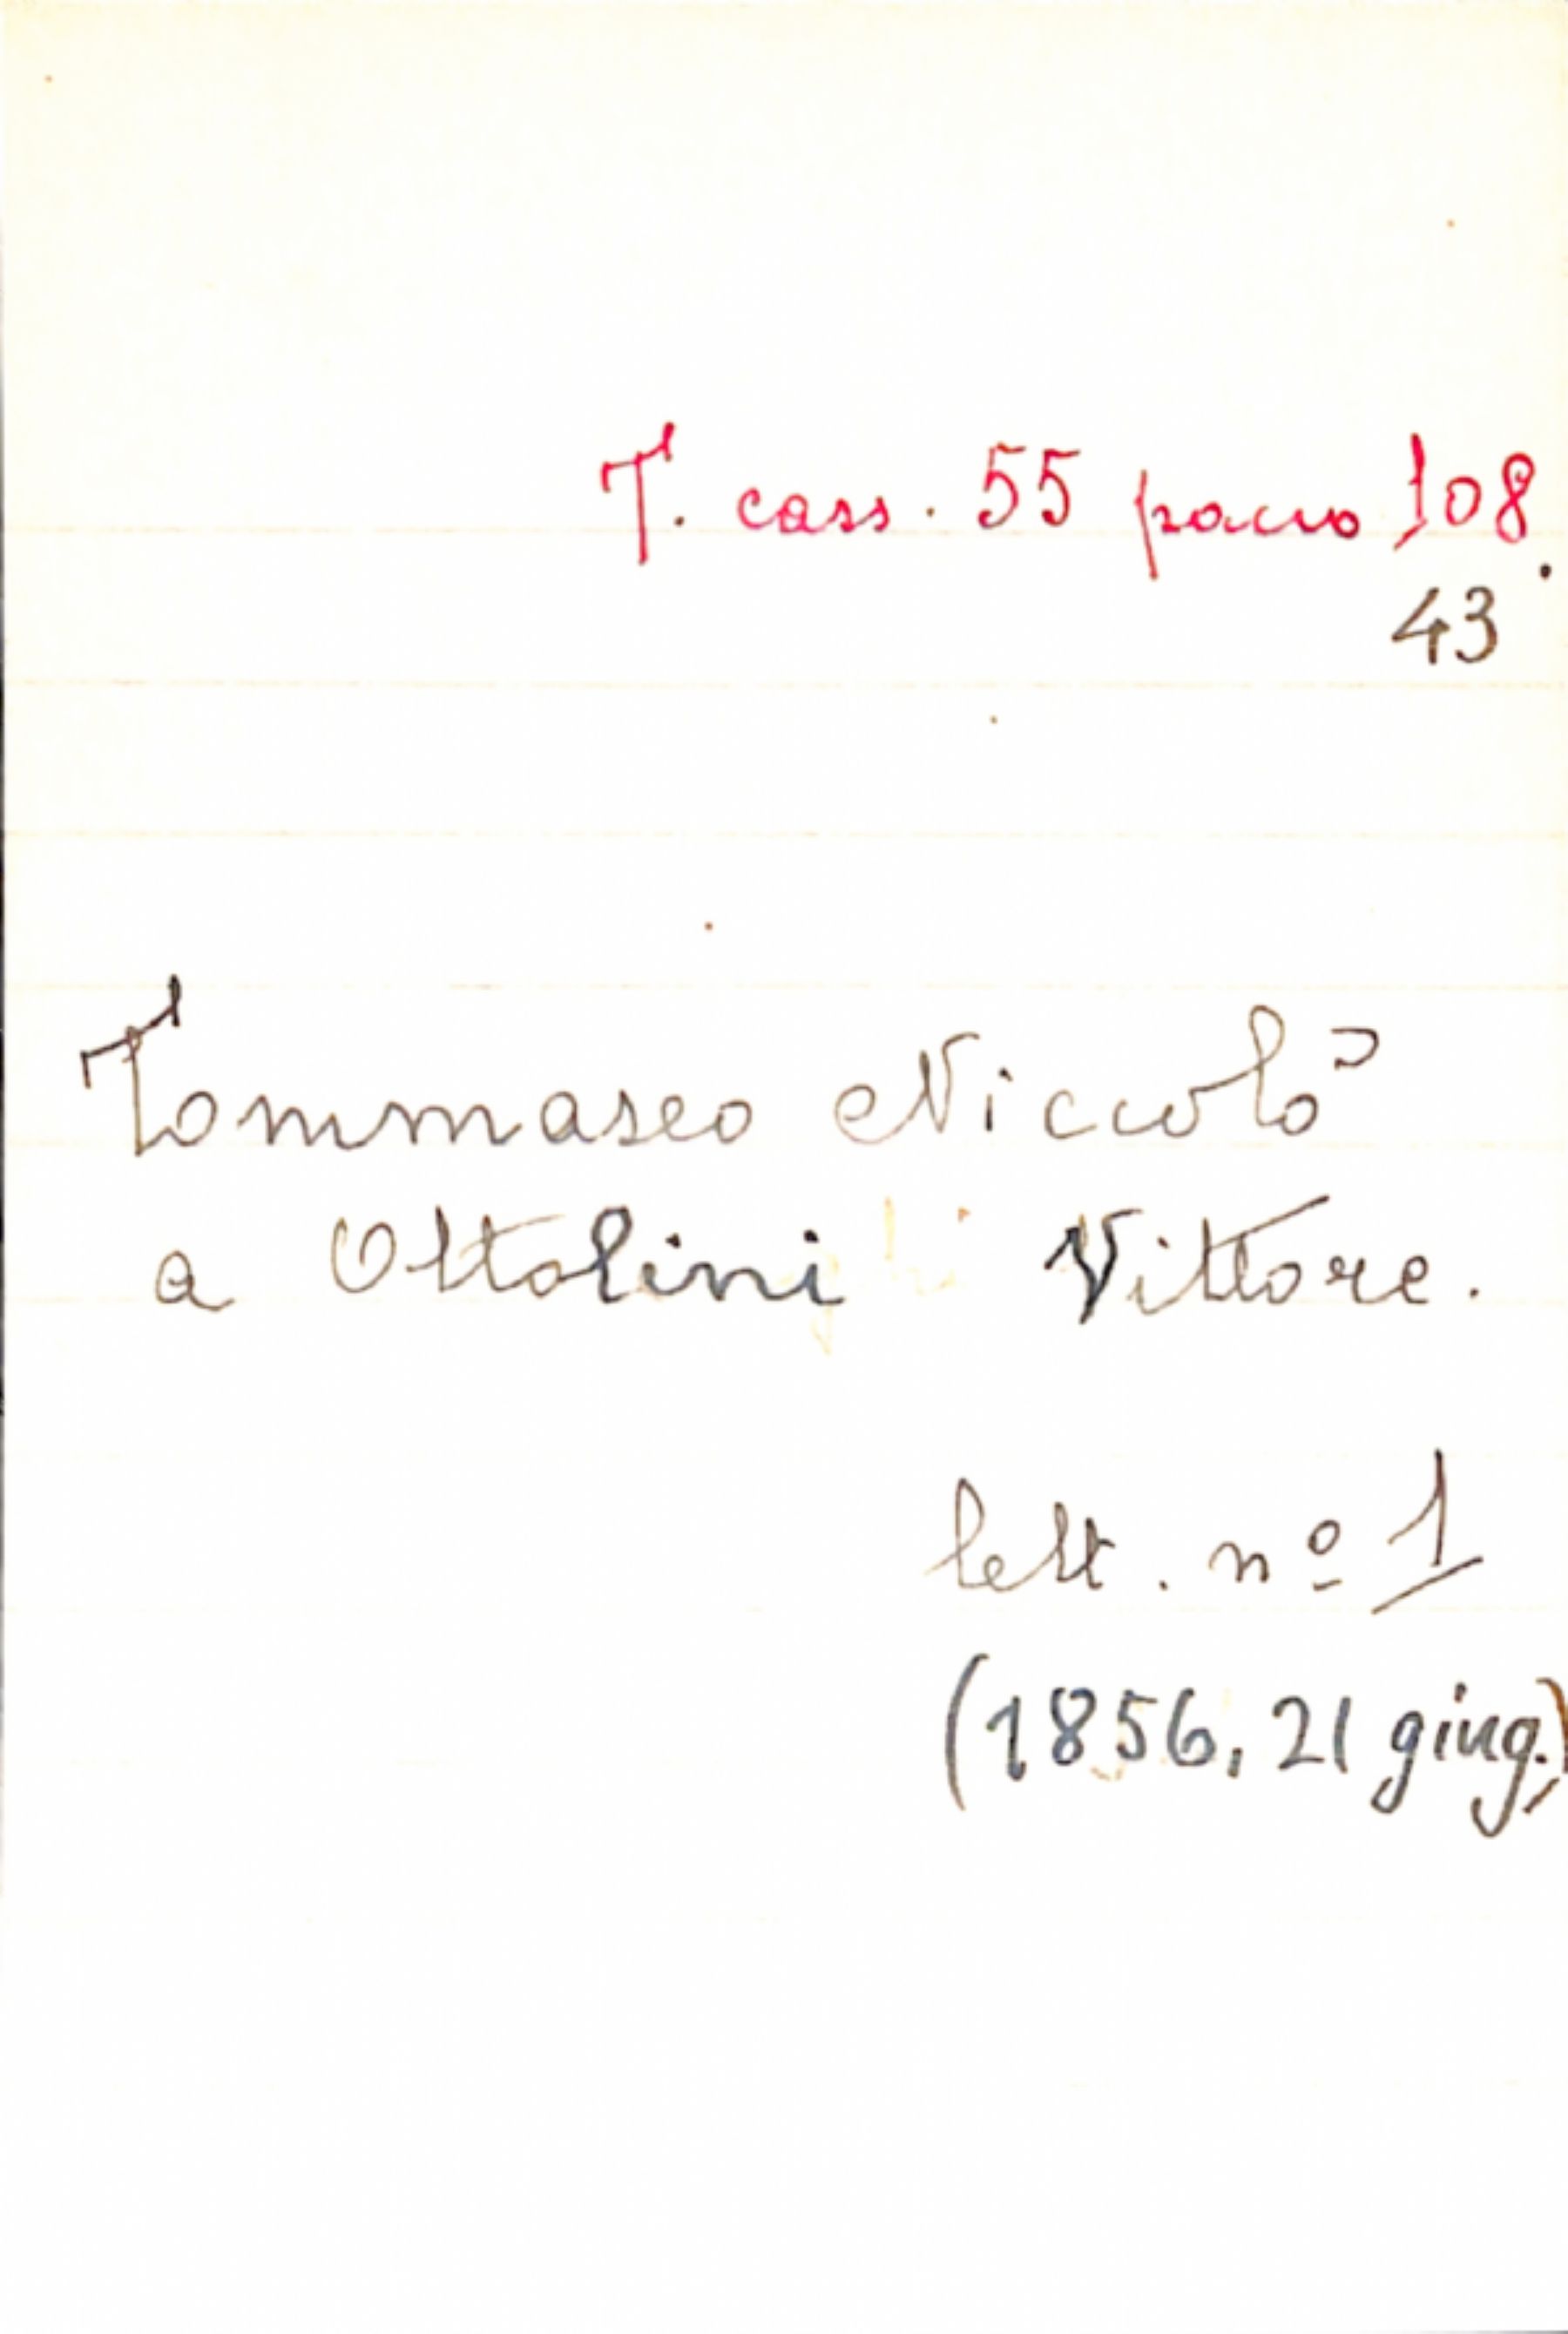 T. cass. 55 pacco 108.
43
Tommaseo Niccolò
a Ottolini Vittore.
lett. nº 1
(1856, 21 giug.)